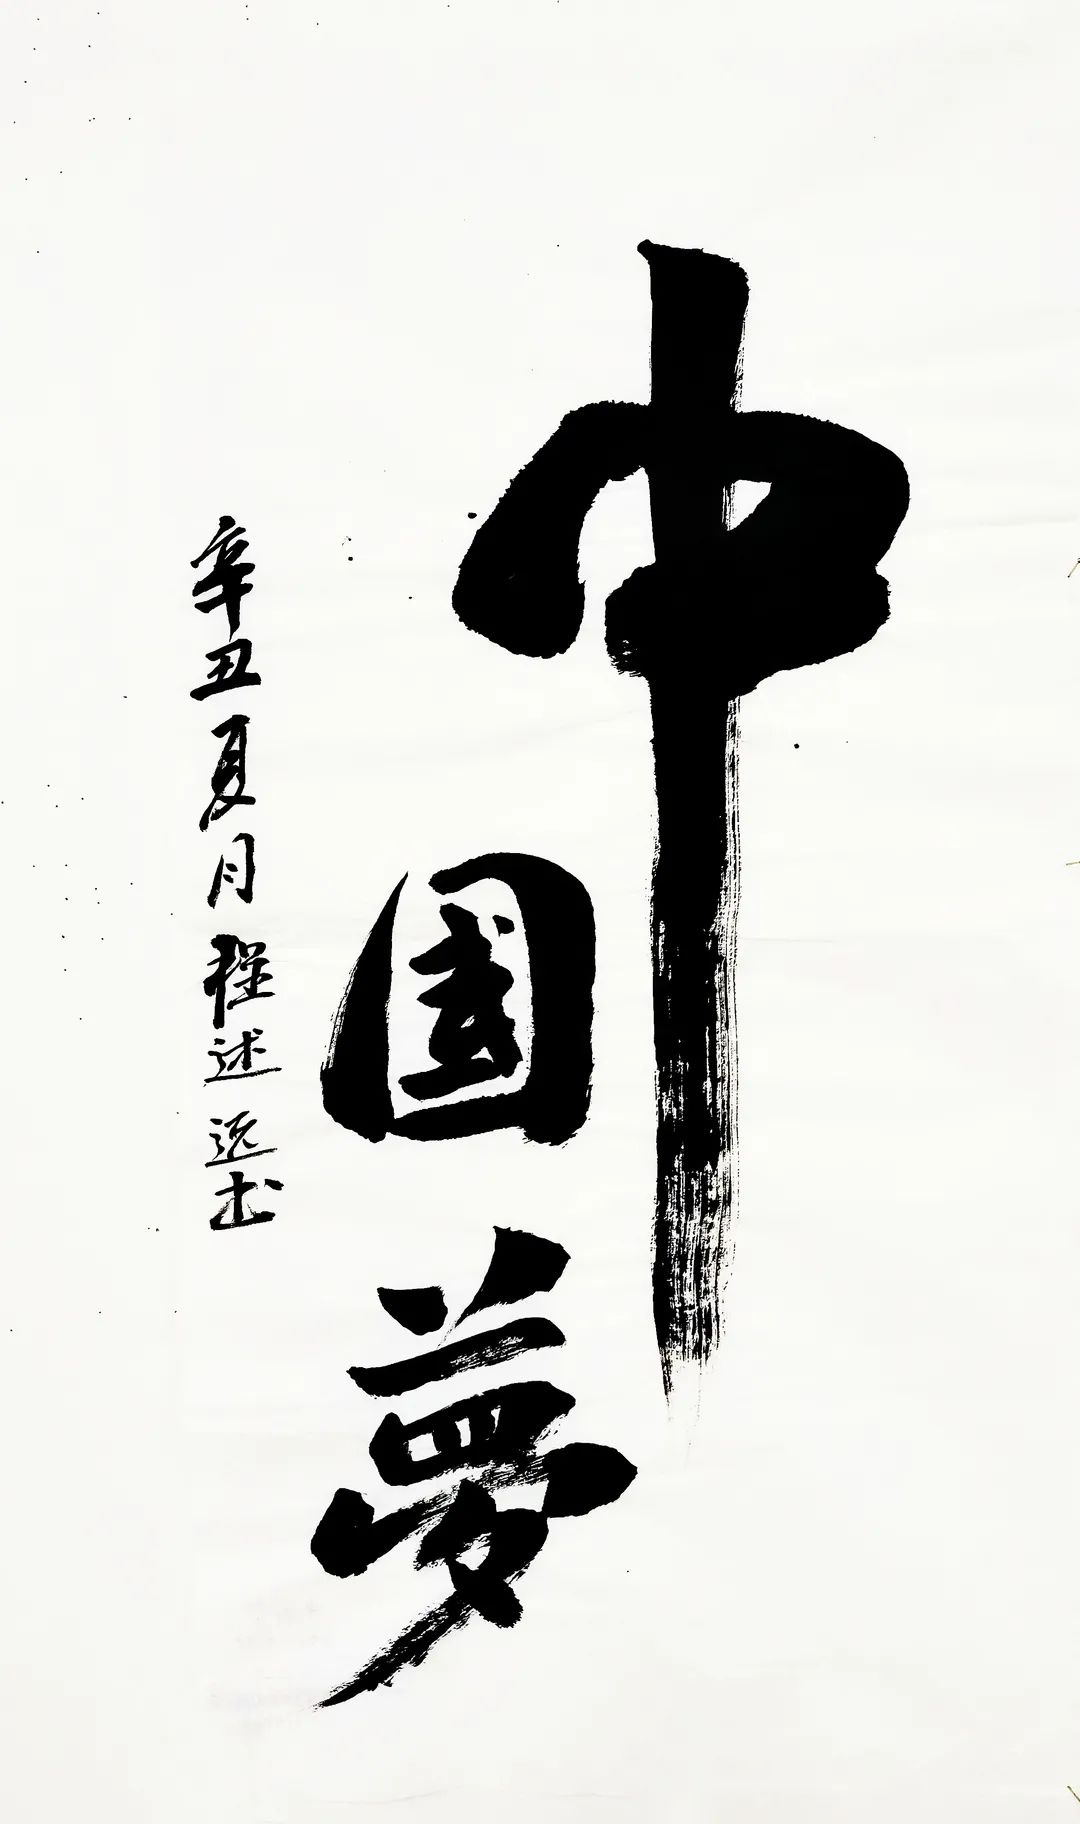 中國夢
辛丑夏月程述远书